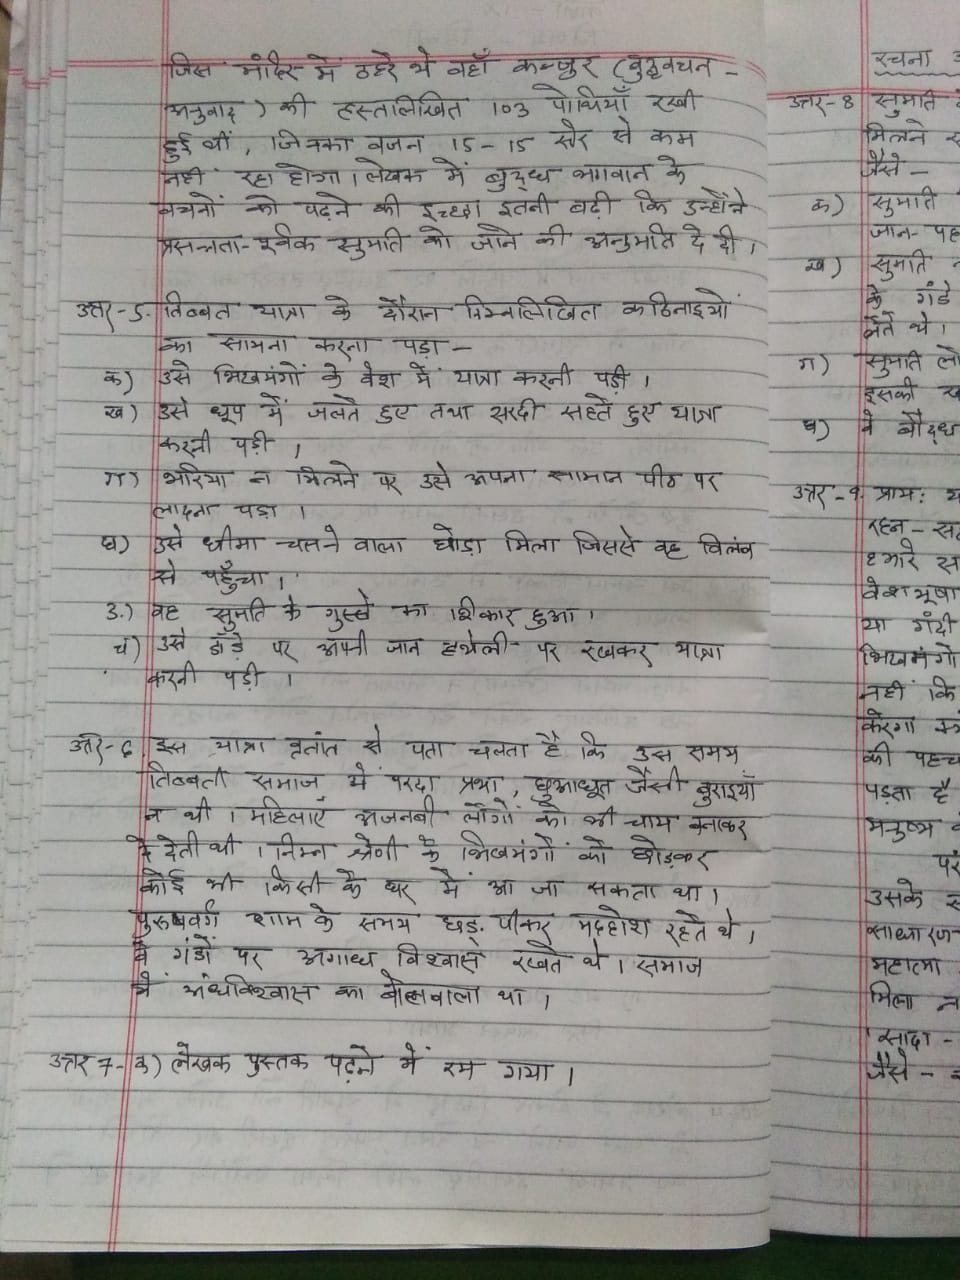 जिस मंदिर में ठहरे थे वहाँ कन्जुर (बुद्धवचन -
अनुवाद) की हस्तलिखित 103 पोथियाँ रखी
हुई थीं, जिनका वजन 15-15 सेर से कम
नहीं रहा होगा। लेखक में बुद्ध भगवान के
वचनों को पढ़ने की इच्छा इतनी बढ़ी कि उन्होंने
प्रसन्नता-पूर्वक सुमति को जाने की अनुमति दे दी।
उत्तर-5. तिब्बत यात्रा के दौरान निम्नलिखित कठिनाइयों
का सामना करना पड़ा -
क) उसे भिखमंगों के वेश में यात्रा करनी पड़ी।
ख) उसे धूप में जलते हुए तथा सरदी सहते हुए यात्रा
करनी पड़ी।
ग) भरिया न मिलने पर उसे अपना सामान पीठ पर
लादना पड़ा।
घ) उसे धीमा चलने वाला घोड़ा मिला जिससे वह विलंब
से पहुँचा।
ङ) वह सुमति के गुस्से का शिकार हुआ।
च) उसे डाँड़े पर अपनी जान हथेली पर रखकर यात्रा
करनी पड़ी।
उत्तर-6 इस यात्रा वृतांत से पता चलता है कि उस समय
तिब्बती समाज में परदा प्रथा, छुआछूत जैसी बुराइयाँ
न थी। महिलाएँ अजनबी लोगों को भी चाय बनाकर
दे देती थी। निम्न श्रेणी के भिखमंगों को छोड़कर
कोई भी किसी के घर में आ जा सकता था।
पुरुषवर्ग शाम के समय छङ् पीकर मदहोश रहते थे।
वे गंडों पर अगाध विश्वास रखते थे। समाज
में अंधविश्वास का बोलबाला था।
उत्तर 7- क) लेखक पुस्तक पढ़ने में रम गया।
रचना
उत्तर-8 सुमति
मिलने
जैसे -
क) सुमति
जान-पह
ख) सुमति
के गंडे
लेते थे।
ग) सुमति लो
इसकी
घ) वे बौद्ध
उत्तर-9. प्राय:
रहन-
हमारे
वेशभूषा
या गंदी
भिखमंगो
नहीं कि
करेगा
की पहच
पड़ता है
मनुष्य
उसके
साधारण
महात्मा
मिला न
'सादा -
जैसे -